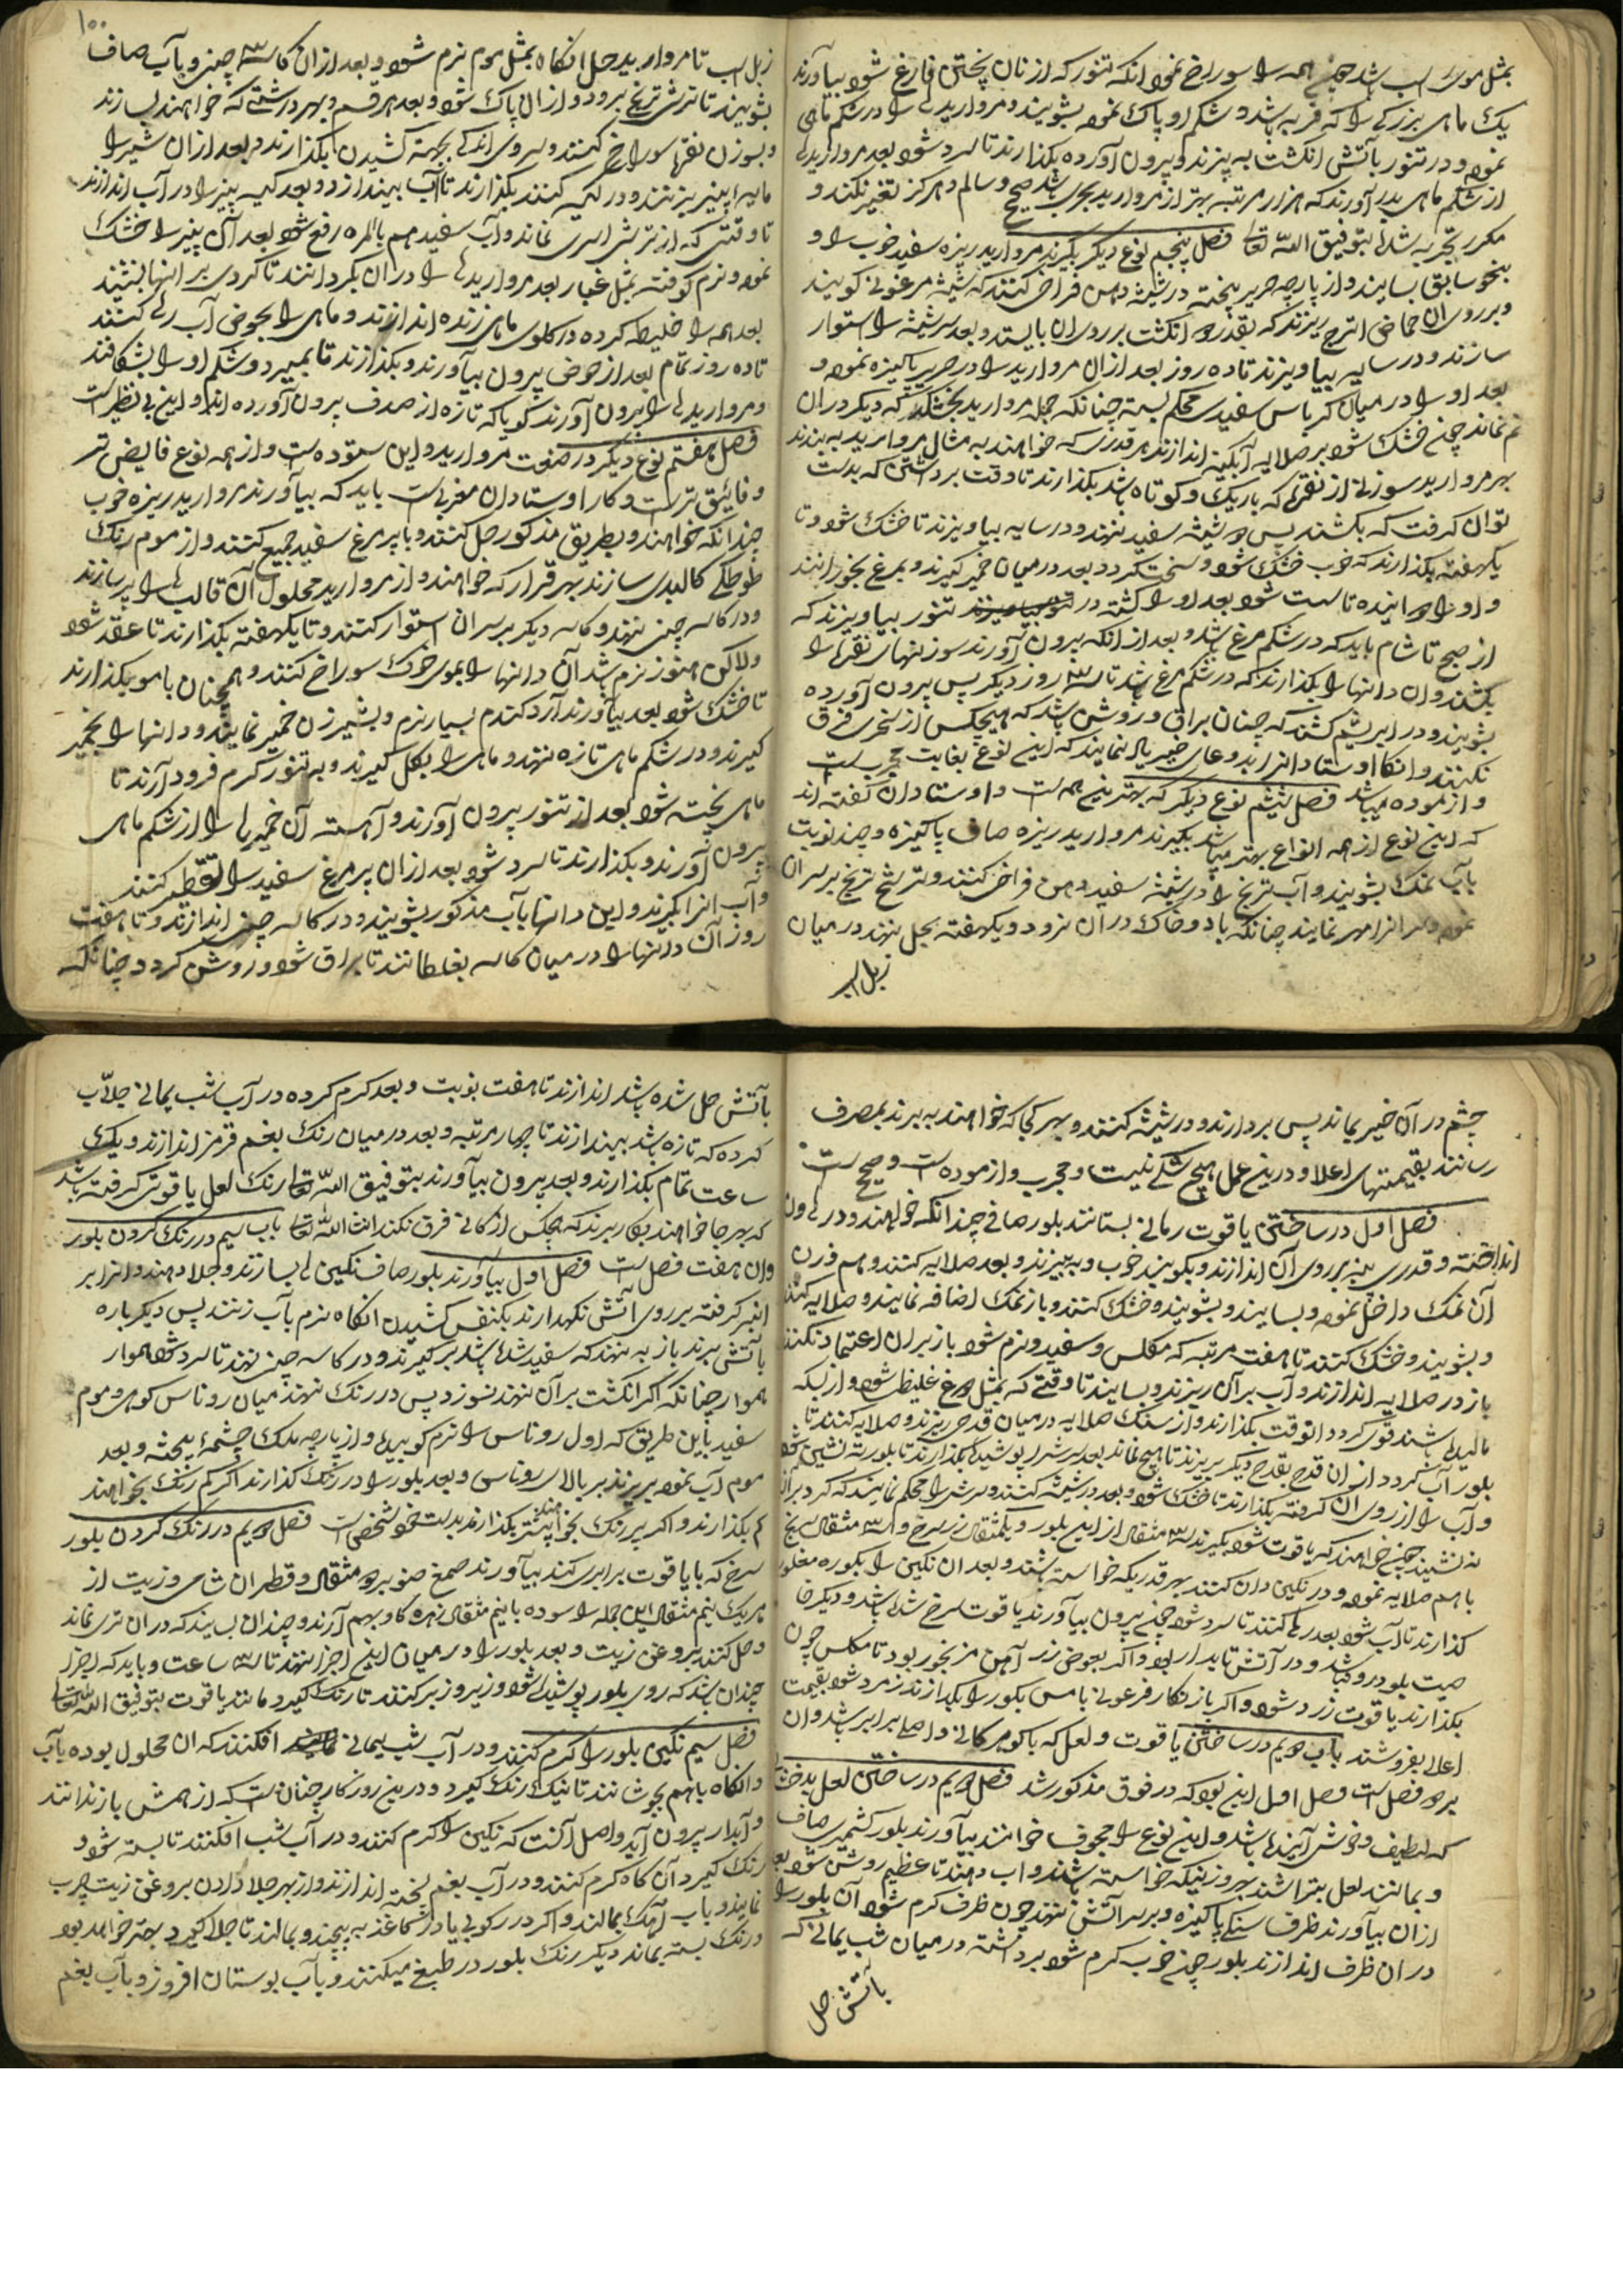 بمثل موی اسب باشد چون همه را سوراخ نمود انکه تنور که از نان پختن فارغ شود بیآورند
یک ماهی بزرکی را که فربه باشد و شکم او پاک نموده بشویند و مروارید را در شکم ماهی
نموده و در تنور بآتش انکشت به پزند و بیرون آورده بکذارند تا سرد شود بعد مروارید
از شکم ماهی بدر آورند که هزار مرتبه بهتر از مروارید بحری باشد صحیح و سالم و هرکز تغیر نکند و
مکرر بتجربه شده بتوفیق اللّه تعالی فصل پنجم نوع دیکر بکیرند مروارید ریزه سفید خوب را و
بنحو سابق بسایند و از پارچه حریر بیخته در شیشه دهن فراخ کنند که شیشه مرغونی کویند
و بر روی ان حماض اترج ریزند که بقدر دو انکشت بر روی ان بایستد و بعد سر شیشه را استوار
سازند و در سایه بیاویزند تا ده روز بعد از ان مروارید را در حریر پاکیزه نموده و
بعد او را در میان کرباس سفیدی محکم بسته چنانکه جمله مروارید بخشکد که دیکر در ان
نم نماند چون خشک شود بر صلایه آبکینه اندازند هر قدری که خواهند به مثال مروارید به بندند
بهر مروارید سوزنی از نقره که باریک و کوتاه باشد بکذارند تا وقت برداشتن که بدست
توان کرفت که بکشند پس در شیشه سفید نهند و در سایه بیاویزند تا خشک شود و تا
یکهفته بکذارند که خوب خشک شود و سخت کردد و بعد در میان خمیر کیرند و بمرغ بخورانند
و او را دوانیده تا سست شود بعد او را کشته در تنور بیاویزند که
از صبح تا شام باید که در شکم مرغ باشد و بعد از انکه بیرون آورند سوزنهای نقره را
بکشند و ان دانها را بکذارند که در شکم مرغ باشد تا سه روز دیکر پس بیرون آورده
بشویند و در ابریشم کشند که چنان براق و روشن باشد که هیچکس از بحری فرق
نکنند و انکا اوستاد انرا بدعای خیر یاد نمایند که این نوع بغایت مجرب است
و ازموده میباشد فصل ششم نوع دیکر که بهترینین همه است و اوستادان کفته اند
که این نوع از همه انواع بهتر میباشد بکیرند مروارید ریزه صاف پاکیزه و چند نوبت
بآب نمک بشویند و آب ترنج را در شیشه سفید دهن فراخ کنند و ترشح ترنج بر سر ان
نموده و سر انرا مهر نمایند چنانکه باد و خاک در ان نرود و یکهفته بحل نهند در میان
زبل اسب
۱۰۰
زبل اسب تا مروارید حل انکاه بمثل موم نرم شود و بعد از ان کاسه چینی و بآب صاف
بشویند تا ترشی ترنج برود و از ان پاک شود و بعد هر قسم و بهر درشتی که خواهند بسازند
و بسوزن نقره سوراخ کنند و سروی اندکی بجهة کشیدن بکذارند و بعد از ان شیر را
مایه پنیر بزنند و در کیسه کنند بکذارند تا آب بیندازد و بعد کیسه پنیر را در آب اندازند
تا وقتی که از ترشی اثری نماند و آب سفید هم بالمره رفع شود بعد آن پنیر را خشک
نموده و نرم کوفته بمثل غبار بعد مروارید را در ان بکردانند تا کردی بر انها بنشیند
بعد همه را خلیط کرده در کلوی ماهی زنده اندازند و ماهی را بحوض آب رها کنند
تا ده روز تمام بعد از حوض بیرون بیآورند و بکذارند تا بمیرد و شکم او را بشکافند
و مروارید را بیرون آورند کویا که تازه از صدف بیرون آورده اند و این بی نظیر است
فصل هفتم نوع دیکر در صنعت مروارید و این ستوده است و از همه نوع فایض تر
و فائیق تر است و کار اوستادان مغربی است باید که بیآورند مروارید ریزه خوب
چندانکه خواهند و بطریق مذکور حل کنند و با پر مرغ سفید جمع کنند و از موم رنک
طوطکی کالبدی سازند بهر قرار که خواهند و از مروارید محلول آن قالب را پر سازند
و در کاسه چینی نهند و کاسه دیکر بر سر ان استوار کنند و تا یکهفته بکذارند تا عقد شود
ولاکن هنوز نرم باشد آن دانها را بموی خوک سوراخ کنند و همچنان با مو بکذارند
تا خشک شود بعد بیآورند آرد کندم بسیار نرم و بشیر زن خمیر نمایند و دانها را بخمیر
کیرند و در شکم ماهی تازه نهند و ماهی را بکل کیرند و بر تنور کرم فرود آرند تا
ماهی پخته شود بعد از تنور بیرون آورند و آهسته آن خمیر را از شکم ماهی
بیرون آورند و بکذارند تا سرد شود بعد از ان پر مرغ سفید را تقطیر کنند
و آب انرا بکیرند و این دانها بآب مذکور بشویند و در کاسه چینی اندازند و تا هفت
روز آن دانها را در میان کاسه بغلطانند تا براق شود و روشن کردد چنانکه
چشم در آن خیره بماند پس بردارند و در شیشه کنند و بهر کجا که خواهند به برند بمصرف
رسانند بقیمتهای اعلا و درین عمل هیچ شکی نیست و مجرب و ازموده است و صحیح است
فصل اول در ساختن یاقوت رمانی بستانند بلور صافی چندانکه خواهند و در
انداخته و قدری پنبه بر روی آن اندازند و بکویند خوب و به بیزند و بعد صلایه کنند و هم وزن
آن نمک داخل نموده و بسایند و بشویند و خشک کنند و باز نمک اضافه نمایند و صلایه کنند
و بشویند و خشک کنند تا هفت مرتبه که مکلس و سفید و نرم شود باز بر ان اعتماد نکنند
باز در صلایه اندازند و آب بر آن ریزند و بسایند تا وقتی که بمثل دوغ غلیظ شود و از بسکه
مالیده باشند قوی کردد انوقت بکذارند و از سنک صلایه در میان قدحی ریزند و صلایه کنند تا
بلور آب کردد از ان قدح بقدح دیکر بریزند تا هیچ نماند بعد سرش را پوشیده بکذارند تا بلور ته نشین شود
و آب را از روی ان کرفته بکذارند تا خشک شود و بعد در شیشه کنند و سرش را محکم نمایند که کرد بر آن
نه نشیند چون خواهند که یاقوت شود بکیرند سه مثقال از این بلور و یکمثقال زر سرخ و سه مثقال سرنج
با هم صلایه نموده و در نکین دان کنند بهر قدریکه خواسته باشند و بعد ان نکین را بکوره
کذارند تا آب شود بعد رها کنند تا سرد شود چون بیرون بیآورند یاقوت سرخ شده باشد و دیکر
و در آتش تاب دار بود و اکر بعوض زر آهن مزنجور بود تا مکلس چون
بکذارند یاقوت زرد شود و اکر باز زنکار فرعونی با مس بکور را بکدازند زمرد شود بقیمت
اعلا بفروشند باب دویم در ساختن یاقوت و لعل که با کوهر کانی و اصلی برابر باشد و ان
بر دو فصل است فصل اول این بود که در فوق مذکور شد فصل دویم در ساختن لعل بدخشانی
که لطیف و خوش آینده باشد و این نوع را مجوف خوانند بیآورند بلور کشمیری صاف
و بمانند لعل بتراشند بهر وزنیکه خواسته باشند و اب دهند تا عظیم روشن شود بعد
از ان بیآورند ظرف سنکی پاکیزه و بر سر آتش نهند چون ظرف کرم شود آن بلور را
در ان ظرف اندازند بلور چون خوب کرم شود برداشته در میان شب یمانی که
بآتش حل
بآتش حل شده باشد اندازند تا هفت نوبت و بعد کرم کرده در آب شب یمانی جلاب
کرده که تازه باشد بیندازند تا چهار مرتبه و بعد در میان رنک بغم قرمز اندازند و یک
ساعت تمام بکذارند و بعد بیرون بیآورند بتوفیق اللّه تعالی رنک لعل یاقوتی کرفته باشد
که بهر جا خواهند بکار برند که هیچکس از کانی فرق نکند انشاء اللّه تعالی باب سیم در رنک کردن بلور
و ان هفت فصل است فصل اول بیآورند بلور صاف نکین را بسازند و جلا دهند و انرا بر
انبر کرفته بر روی آتش نکهدارند بکنفس کشیدن انکاه نرم بآب زنند پس دیکر باره
بآتش برند باز به نهند که سفید شده باشد بر کیرند و در کاسه چینی نهند تا سرد شود هموار
هموار چنانکه اکر انکشت بر آن نهند نسوزد پس در رنک نهند میان روناس کوهی و موم
سفید باین طریق که اول روناس را نرم کوبیده و از پارچه ململ چشمه بیخته و بعد
موم آب نموده بریزند بر بالای روناس و بعد بلور را در رنک کذارند اکر کم رنک بخواهند
کم بکذارند و اکر پر رنک بخواهند بیشتر بکذارند بدست خود شخص است فصل دویم در رنک کردن بلور
سرخ که با یاقوت برابری کند بیآورند صمغ صنوبر دو مثقال و قطران شامی و زیت از
هر یک نیم مثقال این جمله را سوده با نیم مثقال زهره کاو بهم آرند و چندان بسایند که در ان تری نماند
و حل کنند بروغن زیت و بعد بلور را در میان این اجزا نهند تا سه ساعت و باید که اجزا
چندان باشد که روی بلور پوشیده شود و زیر و زبر کنند تا رنک کیرد مانند یاقوت بتوفیق اللّه تعالی
فصل سیم نکین بلور را کرم کنند و در آب شب یمانی افکنند که ان محلول بوده بآب
و انکاه باهم بجوشانند تا نیک رنک کیرد و درین روزکار چنان است که از همش باز ندانند
و آبدار بیرون آید و اصل آنست که نکین را کرم کنند و در آب شب افکنند تا بسته شود
رنک کیرد آن کاه کرم کنند و در آب بغم پخته اندازند و از بهر جلا دادن بروغن زیت چرب
نمایند و باب آهک بمالند و اکر در رکوی یا در کاغذ به پیچند و بمالند تا جلا کیرد بهتر خواهد بود
و رنک بسته بماند دیکر رنک بلور در طبخ میکنند و بآب بوستان افروز و بآب بغم